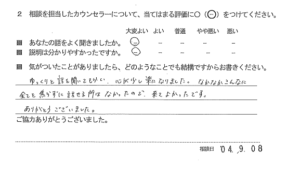 2 相談を担当したカウンセラーについて、当てはまる評価に○(○)をつけてください。
大変よい よい 普通 やや悪い 悪い
■ あなたの話をよく聞きましたか。
■ 説明は分かりやすかったですか。
■ 気がついたことがありましたら、どのようなことでも結構ですからお書きください。
ゆっくりと話を聞いて下さり、心が少し楽になりました。なかなかこんなに
全てを話せる所はなかったので、来てよかったです。
ありがとうございました。
ご協力ありがとうございました。
相談日 '04.9.08